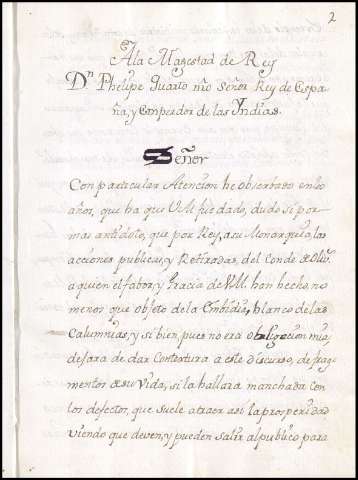 2
A la Magestad de Rey
Dn Phelipe Quarto nro Señor Rey de Espa
ña, y emperador de las Yndias.
Señor
Con particular Atencion he observado en los
años, que ha que VM fue dado, dudo si por
mas antidoto, que por Rey, a su Monarquia, las
acciones publicas, y Retiradas, del Conde de Oliv.
a quien el fabor, y gracia de VM. han hecho, no
menos que objeto de la Embidia, blanco de las
Calumnias, y si bien, pues no era obligacion mia,
dejara de dar Contextura a este discurso, de frag
mentos de su Vida, si la hallara manchada con
los defectos, que suele atraer asi la prosperidad
viendo que deven, y pueden salir al publico para